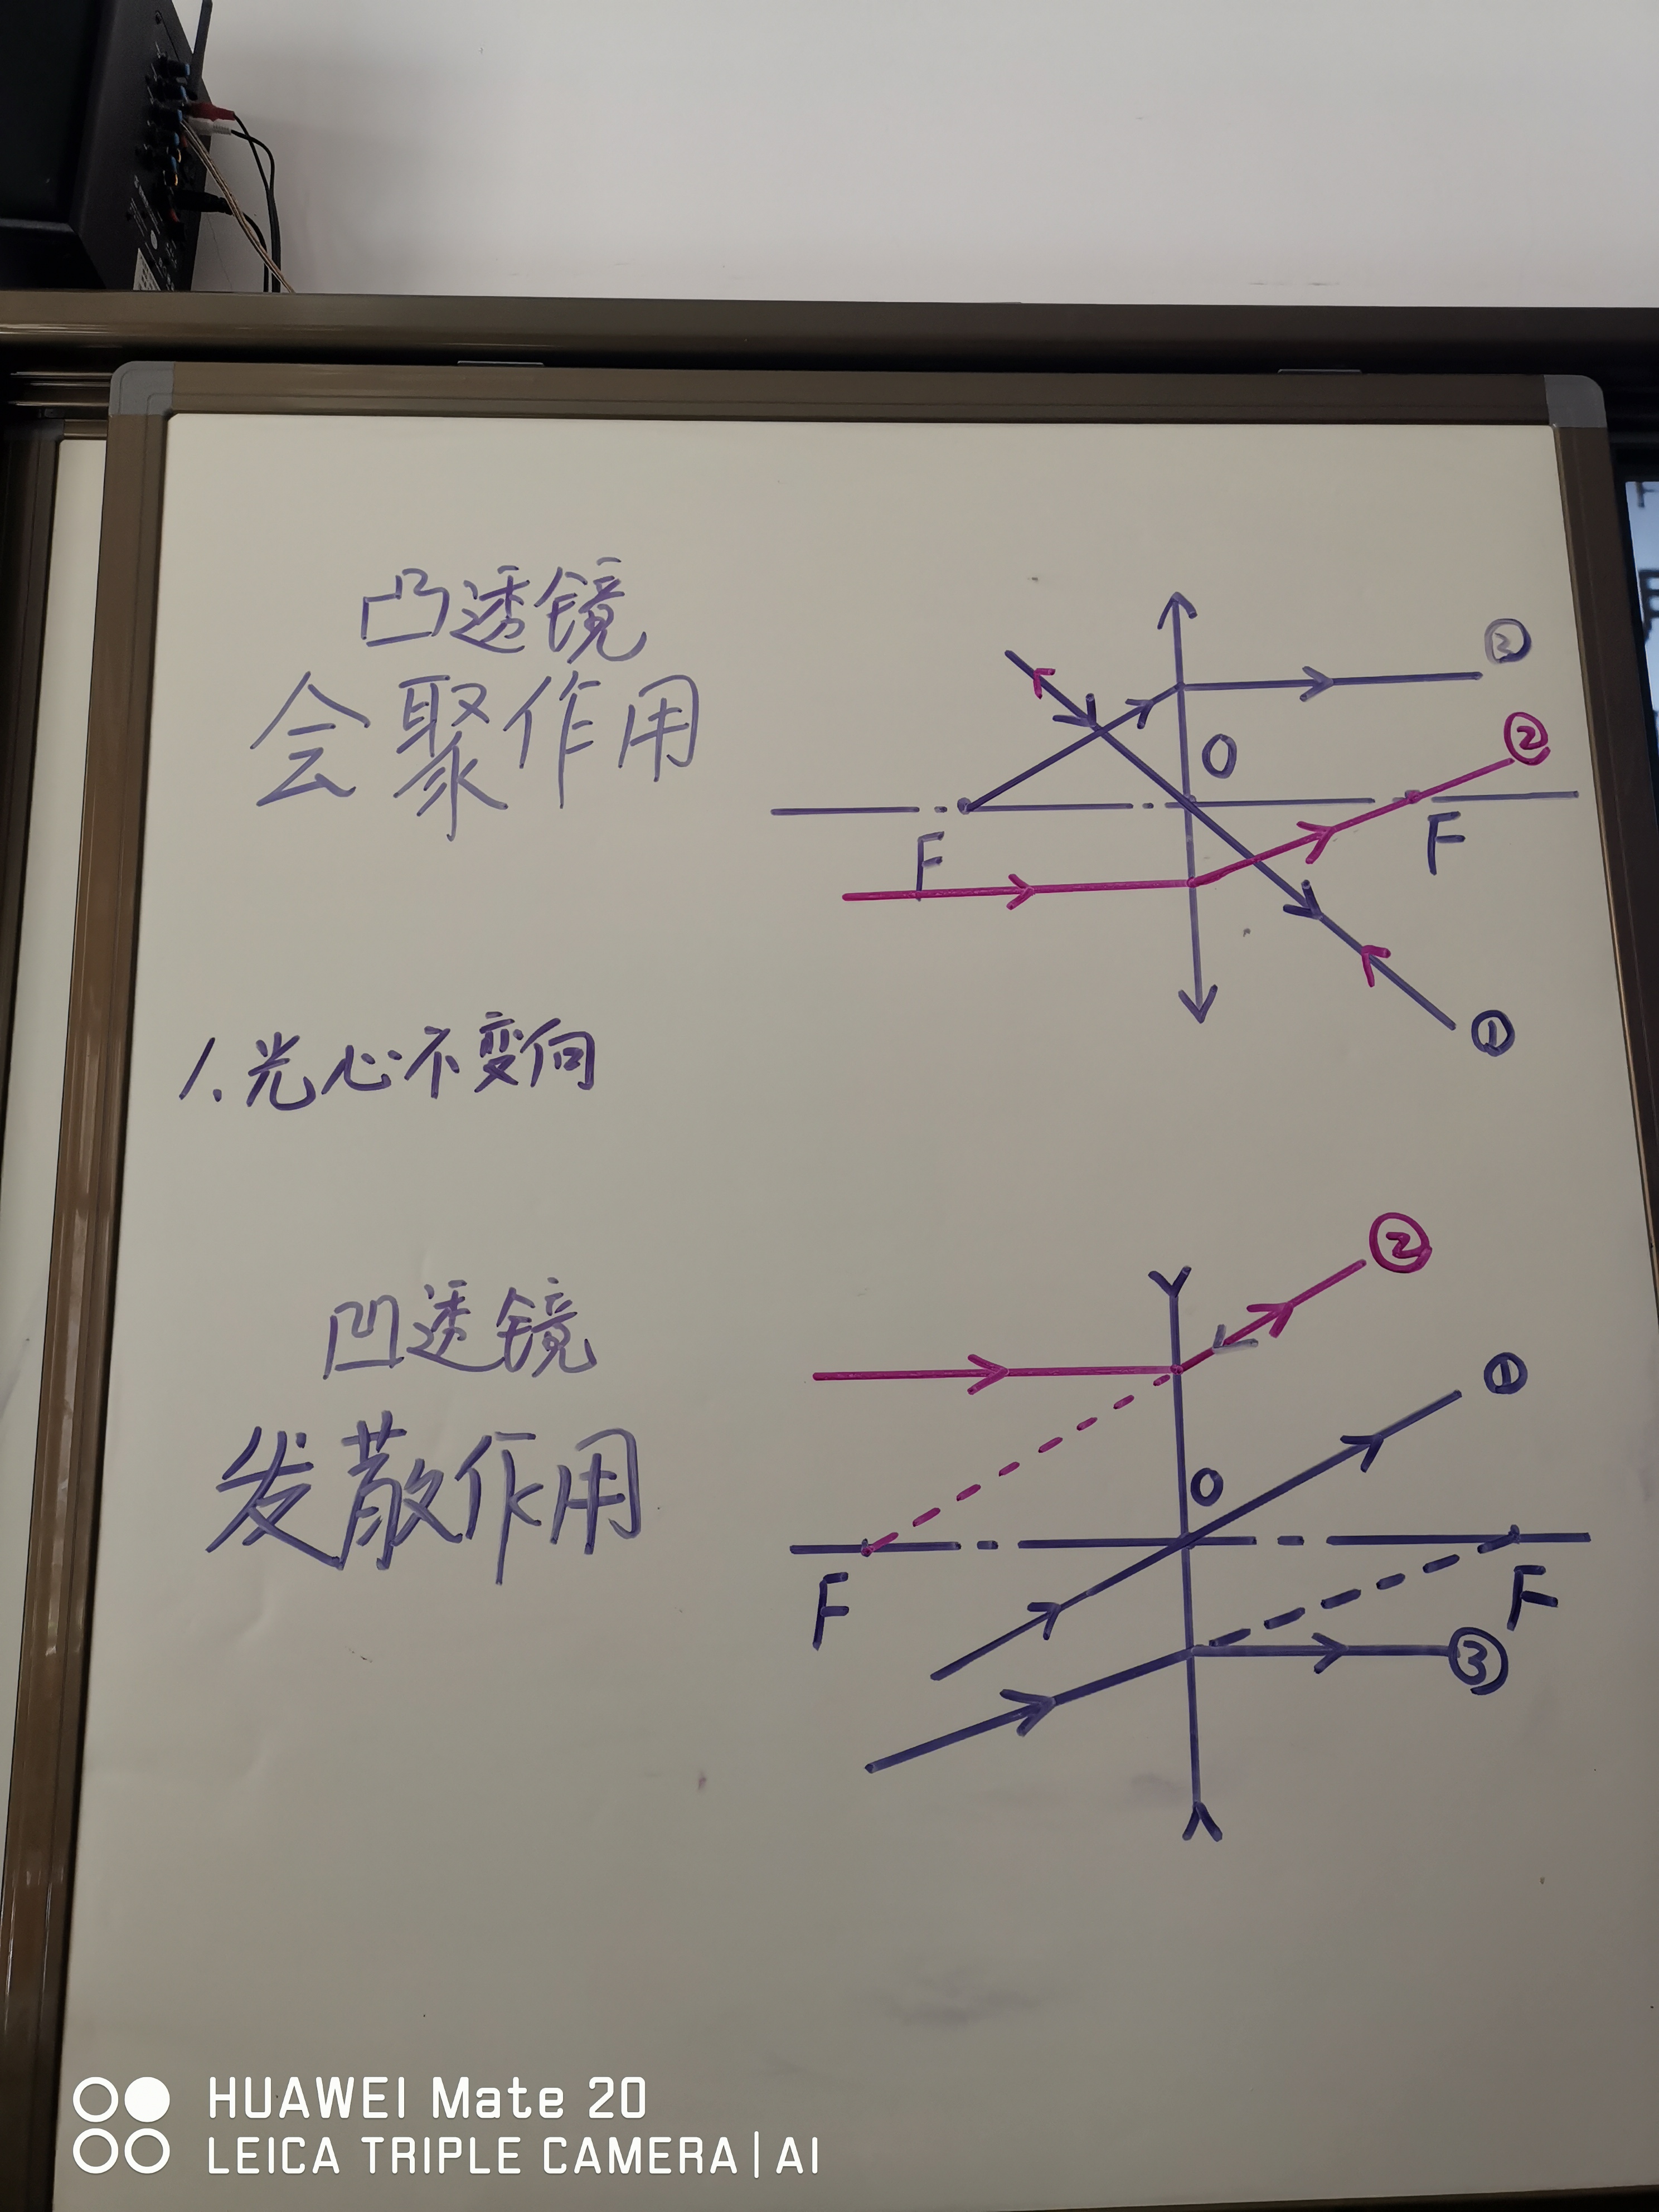 凸透镜
会聚作用
③
②
O
F
F
①
1.光心不变向
凹透镜
发散作用
②
①
O
F
F
③
HUAWEI Mate 20
LEICA TRIPLE CAMERA | AI